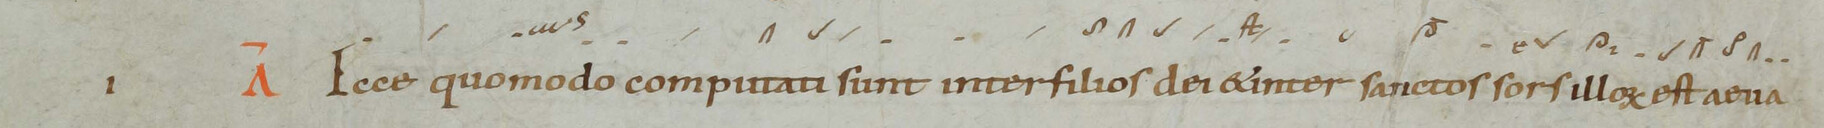 I A Ecce quomodo computati sunt inter filios dei & inter sanctos sors illoꝝ est aeua